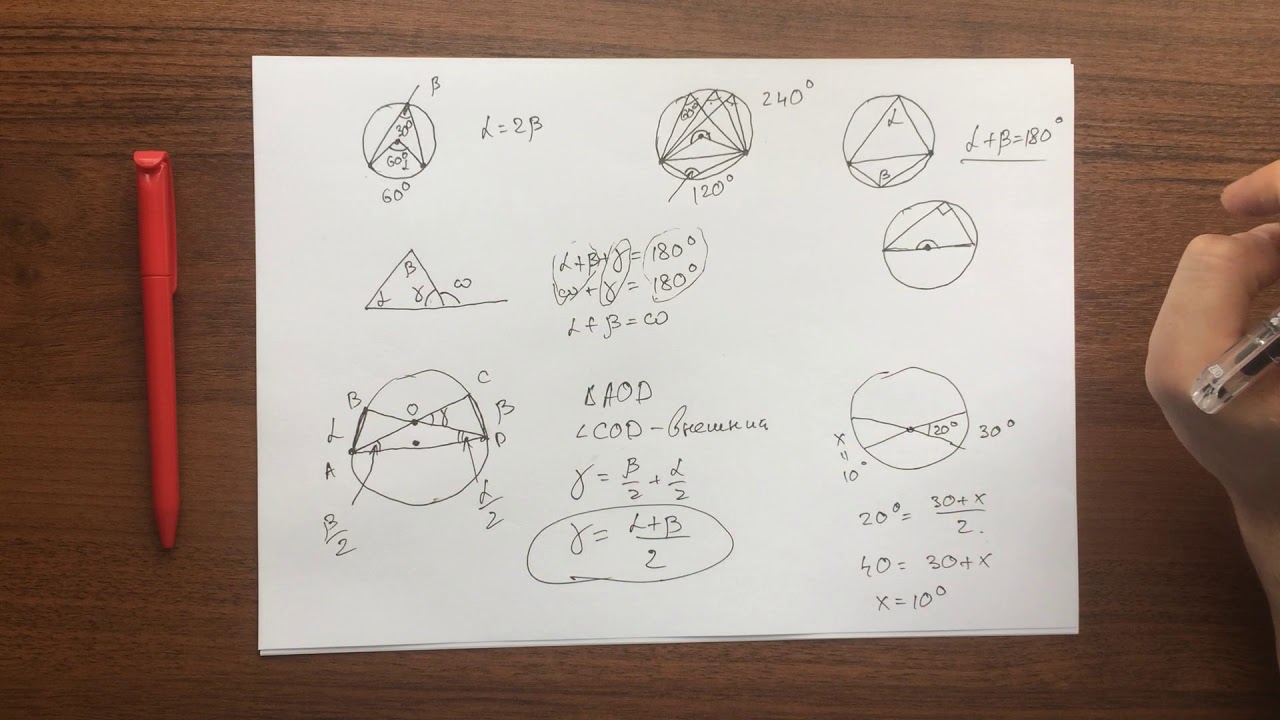 β
30°
60°
α
60°
α = 2β
60°
240°
120°
α
β
α + β = 180°
β
α γ ω
α + β + γ = 180°
ω + γ = 180°
α + β = ω
B O C
α γ β
A D
β/2
α/2
Δ AOD
∠COD – внешний
γ = β/2 + α/2
γ = (α + β)/2
20° 30°
x
=
10°
20° = (30 + x)/2.
40 = 30 + x
x = 10°